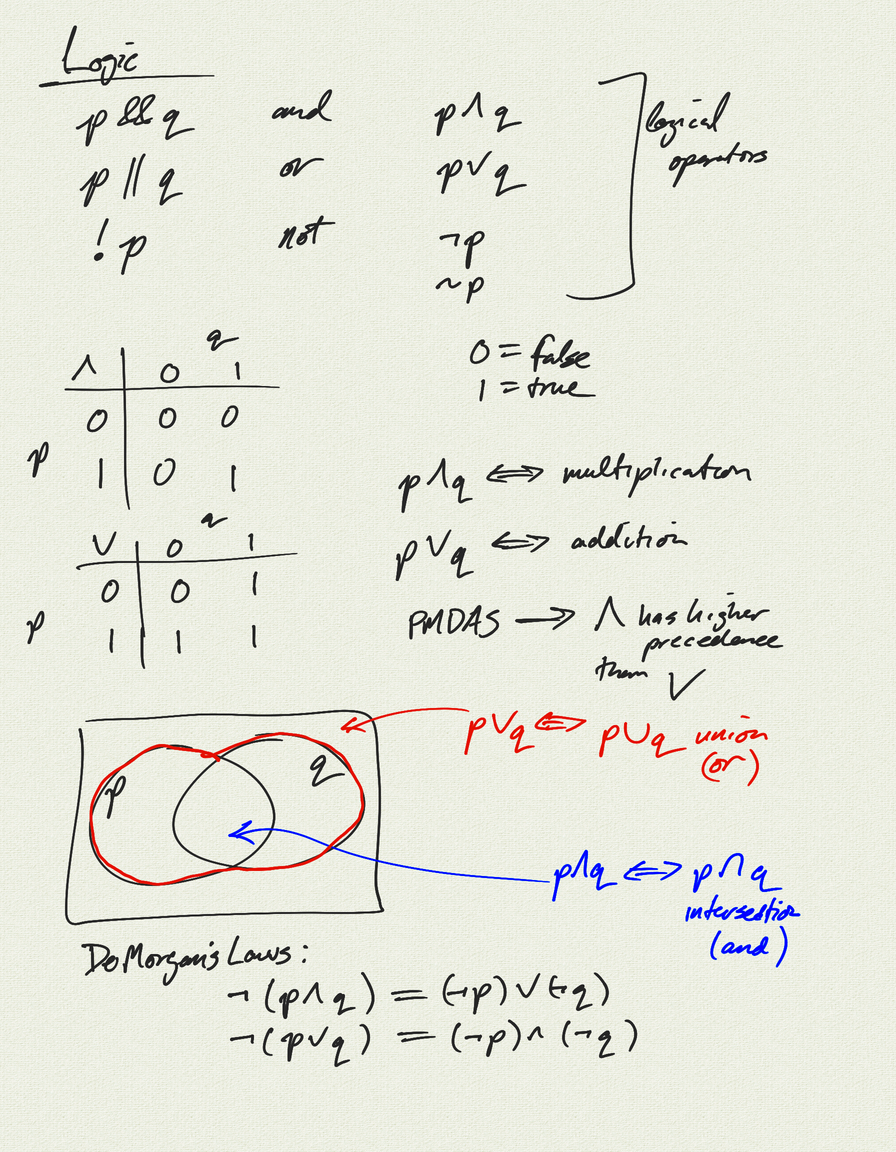 Logic
p && q and p ∧ q
p || q or p ∨ q
! p not ¬p
~p
logical
operators
0 = false
1 = true
q
∧ 0 1
0 0 0
p
1 0 1
q
∨ 0 1
0 0 1
p
1 1 1
p ∧ q ⇔ multiplication
p ∨ q ⇔ addition
PMDAS → ∧ has higher
precedence
than ∨
p ∨ q ⇔ p ∪ q union
(or)
p q
p ∧ q ⇔ p ∩ q
intersection
(and)
DeMorgan's Laws:
¬ (p ∧ q) = (¬p) ∨ (¬q)
¬ (p ∨ q) = (¬p) ∧ (¬q)